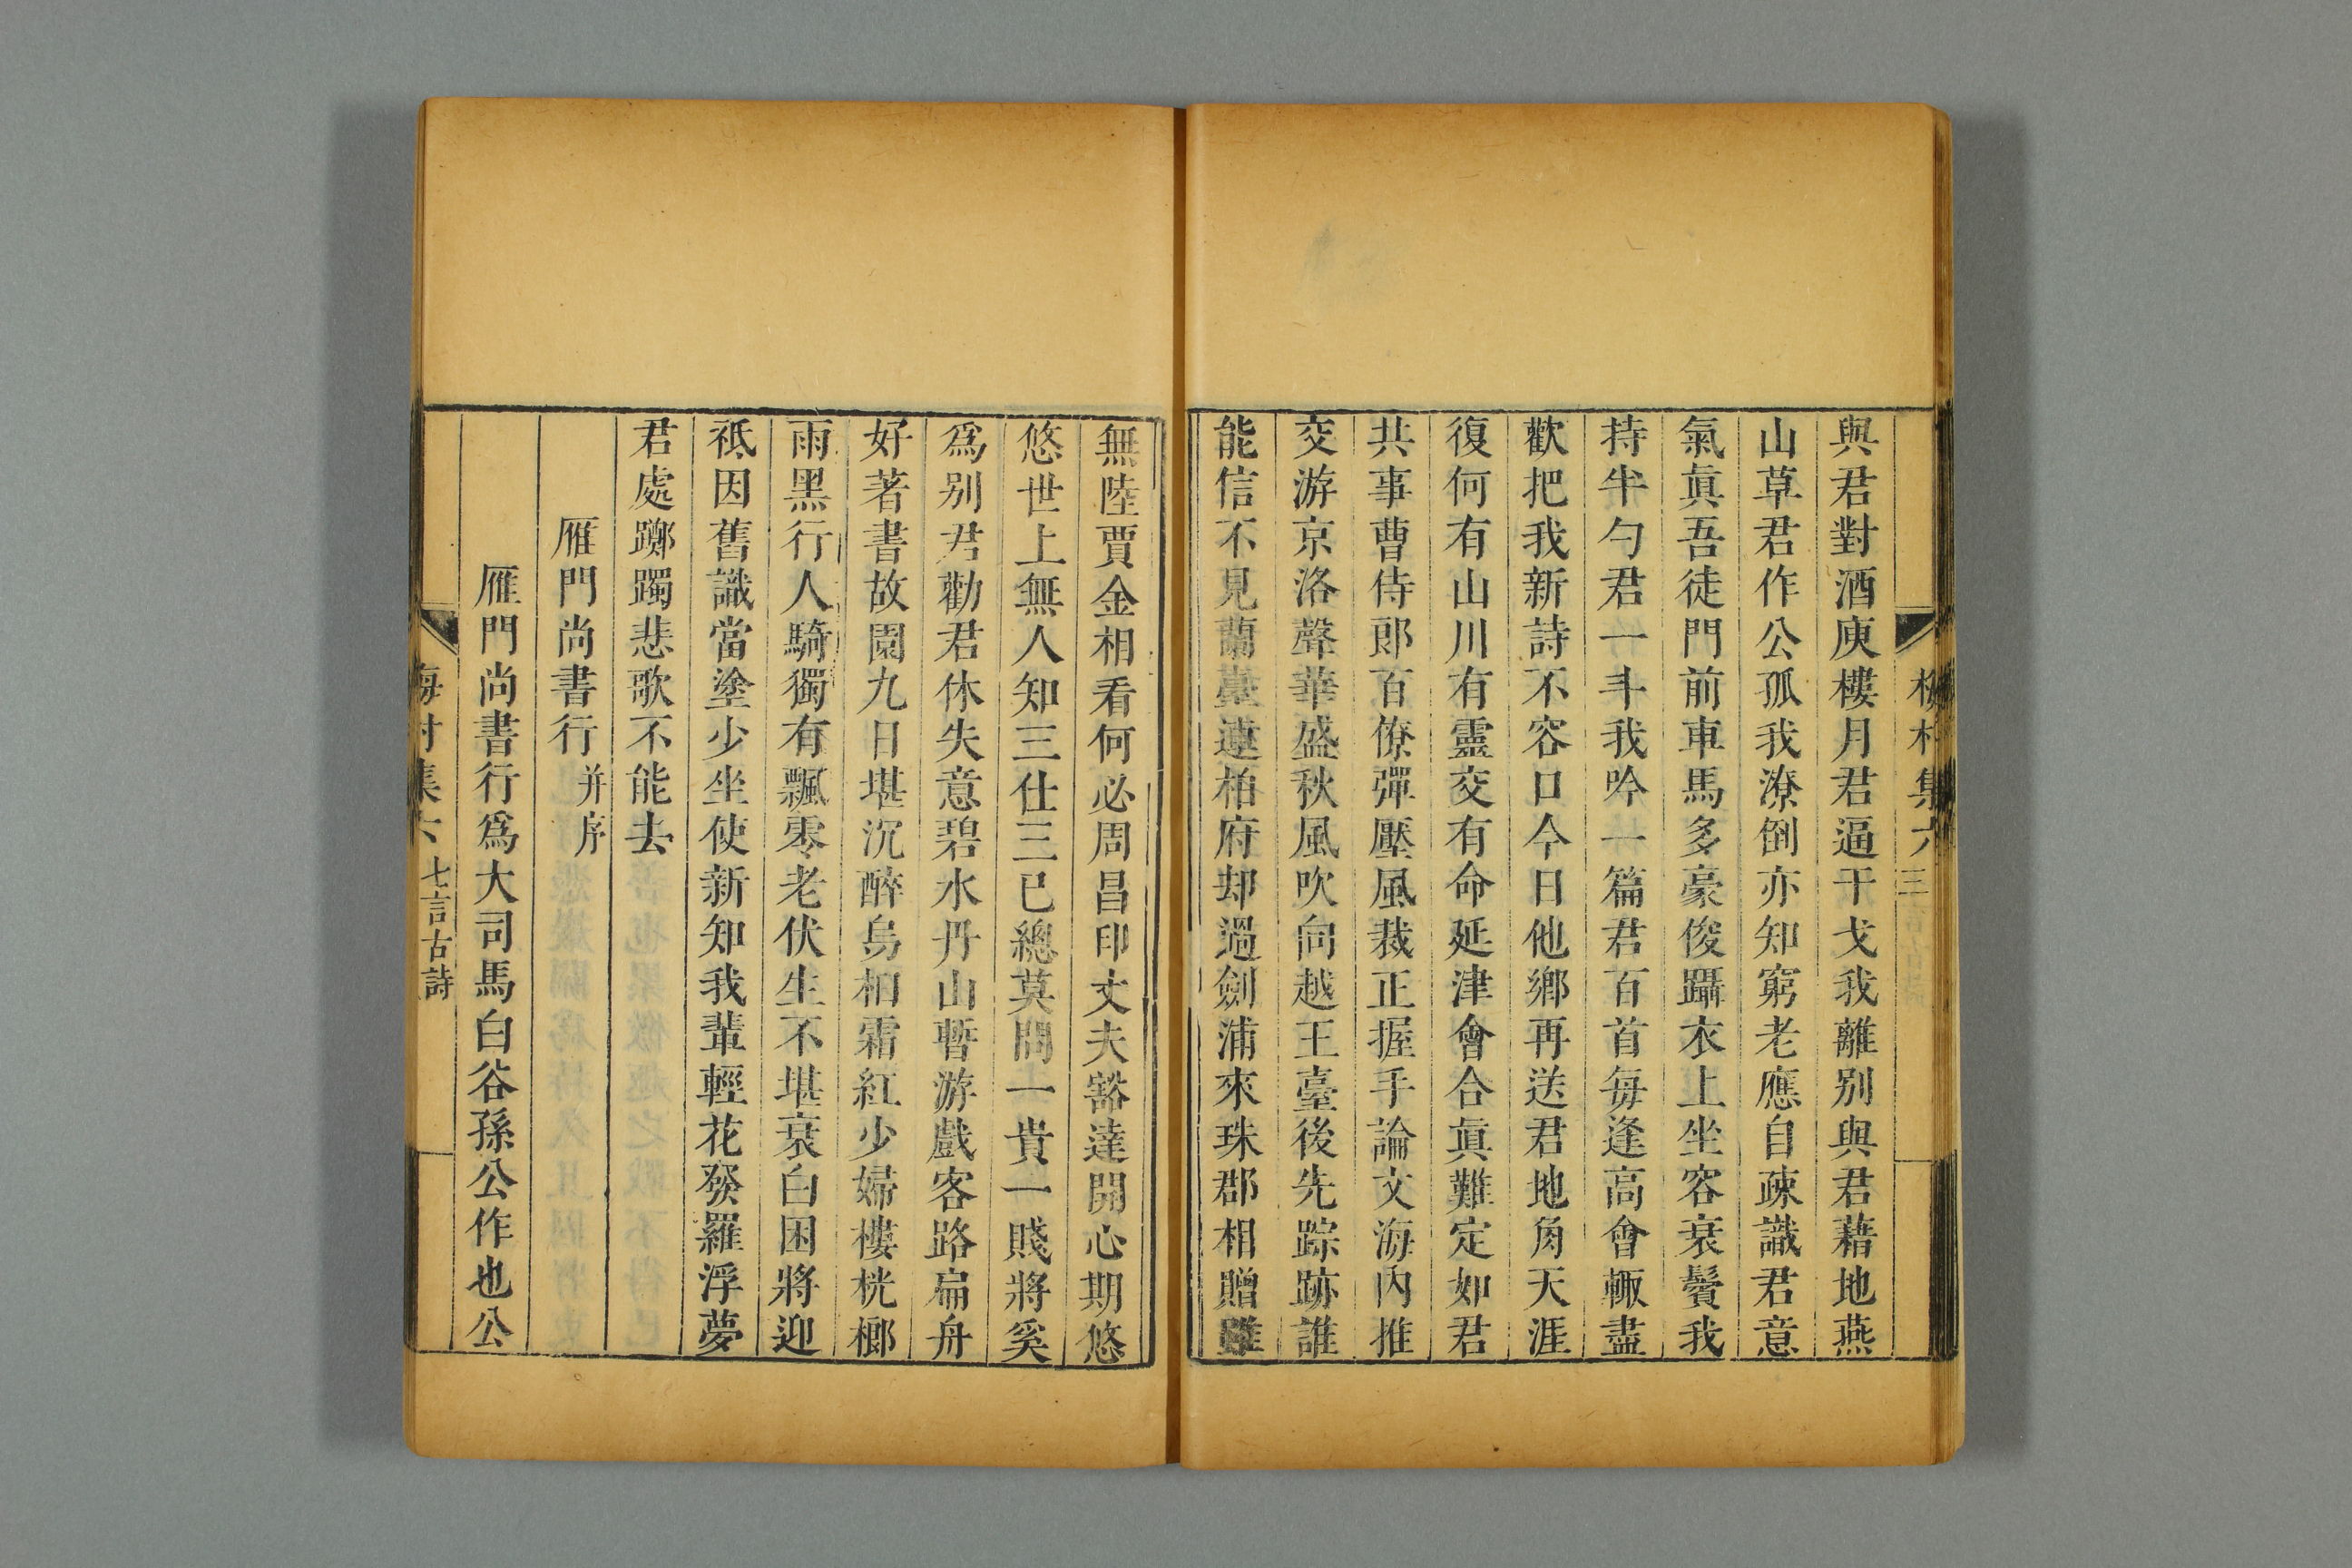 與君對酒庾樓月君逼干戈我離別與君藉地燕
山草君作公孤我潦倒亦知窮老應自疎識君意
氣眞吾徒門前車馬多豪俊躡衣上坐容衰鬢我
持半勺君一斗我吟一篇君百首每逢高會輙盡
歡把我新詩不容口今日他鄉再送君地角天涯
復何有山川有靈交有命延津會合眞難定如君
共事曹侍郎百僚彈壓風裁正握手論文海內推
交游京洛聲華盛秋風吹向越王臺後先踪跡誰
能信不見蘭臺遶柏府却過劍浦來珠郡相贈雖
無陸賈金相看何必周昌印丈夫豁達開心期悠
悠世上無人知三仕三已總莫問一貴一賤將奚
爲别君勸君休失意碧水丹山暫游戲客路扁舟
好著書故園九日堪沉醉烏桕霜紅少婦樓桄榔
雨黑行人騎獨有飄零老伏生不堪衰白困將迎
祗因舊識當塗少坐使新知我輩輕花發羅浮夢
君處躑躅悲歌不能去
雁門尚書行并序
雁門尚書行爲大司馬白谷孫公作也公
梅村集六 七言古詩